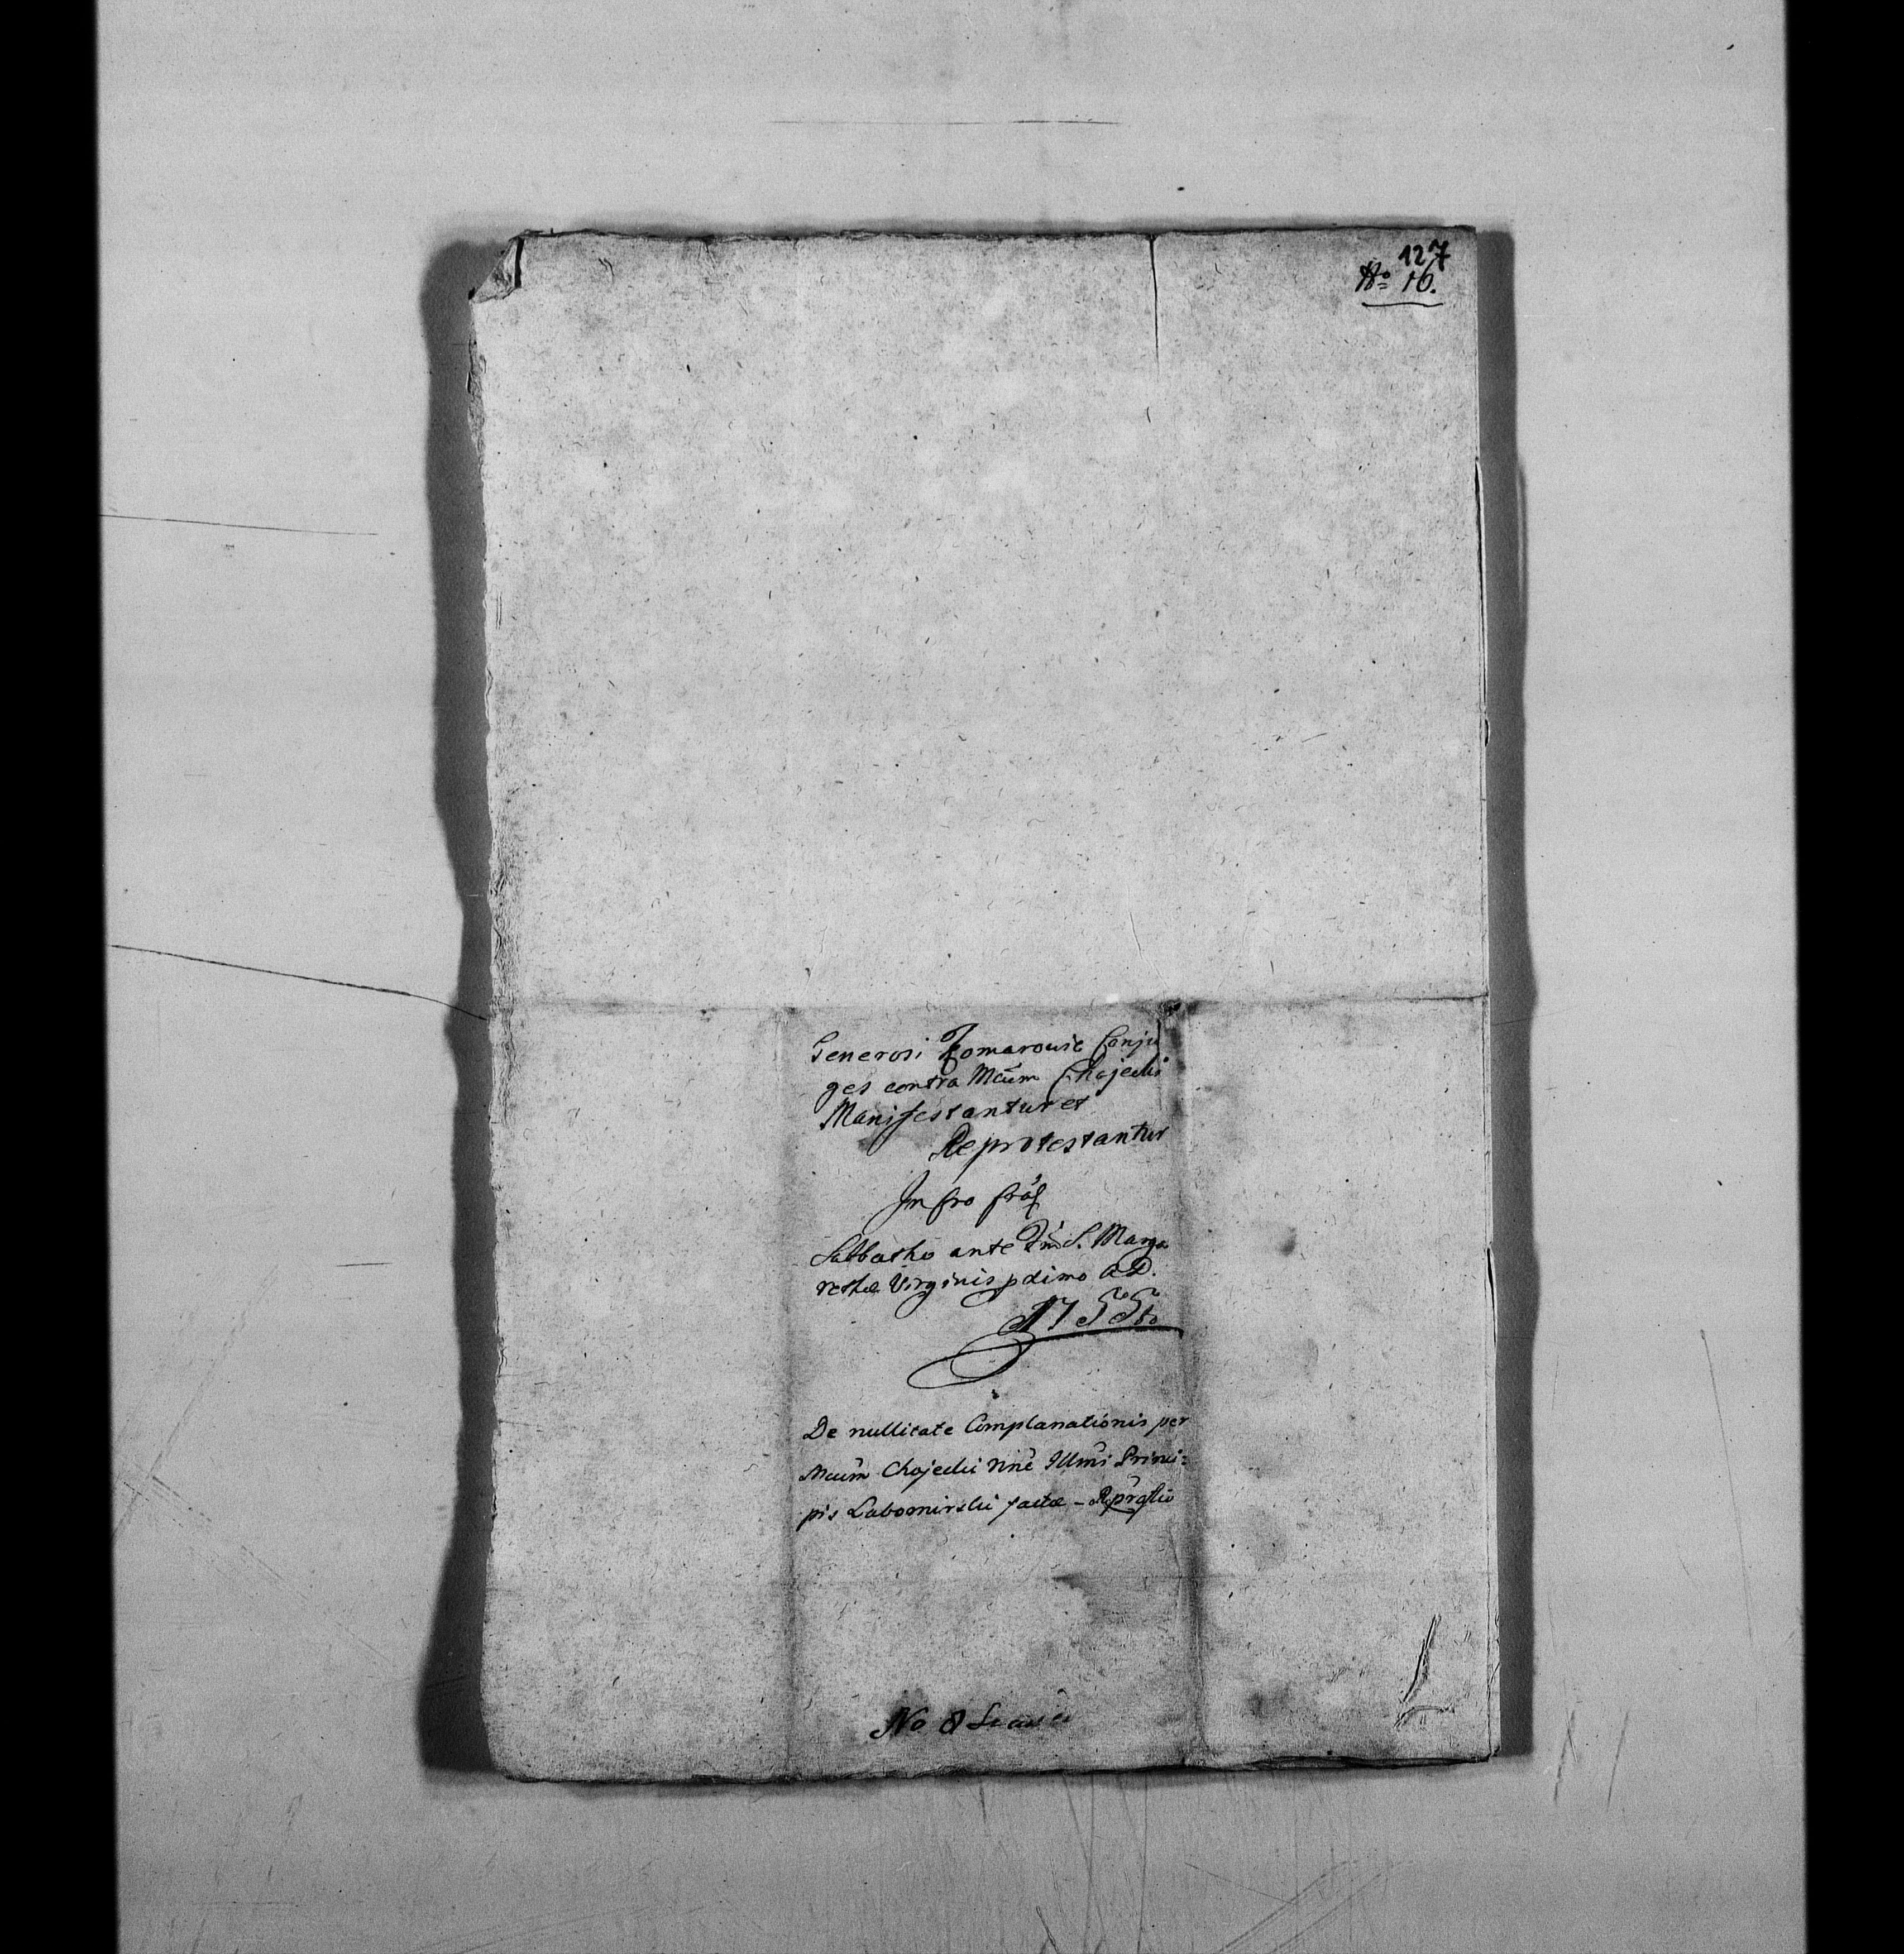 127
No 16.
Generosi Komarowie Conju
ges contra Mcum Chojecki
Manifestantur et
Reprotestantur
In Cro
Sabbatho ante S. Marga
rethæ Virginis pdimo A D.
1755to
De nullitate Complanationis per
Mcum Chojecki nne Illmi Princi:
pis Lubomirski factæ -
No 8